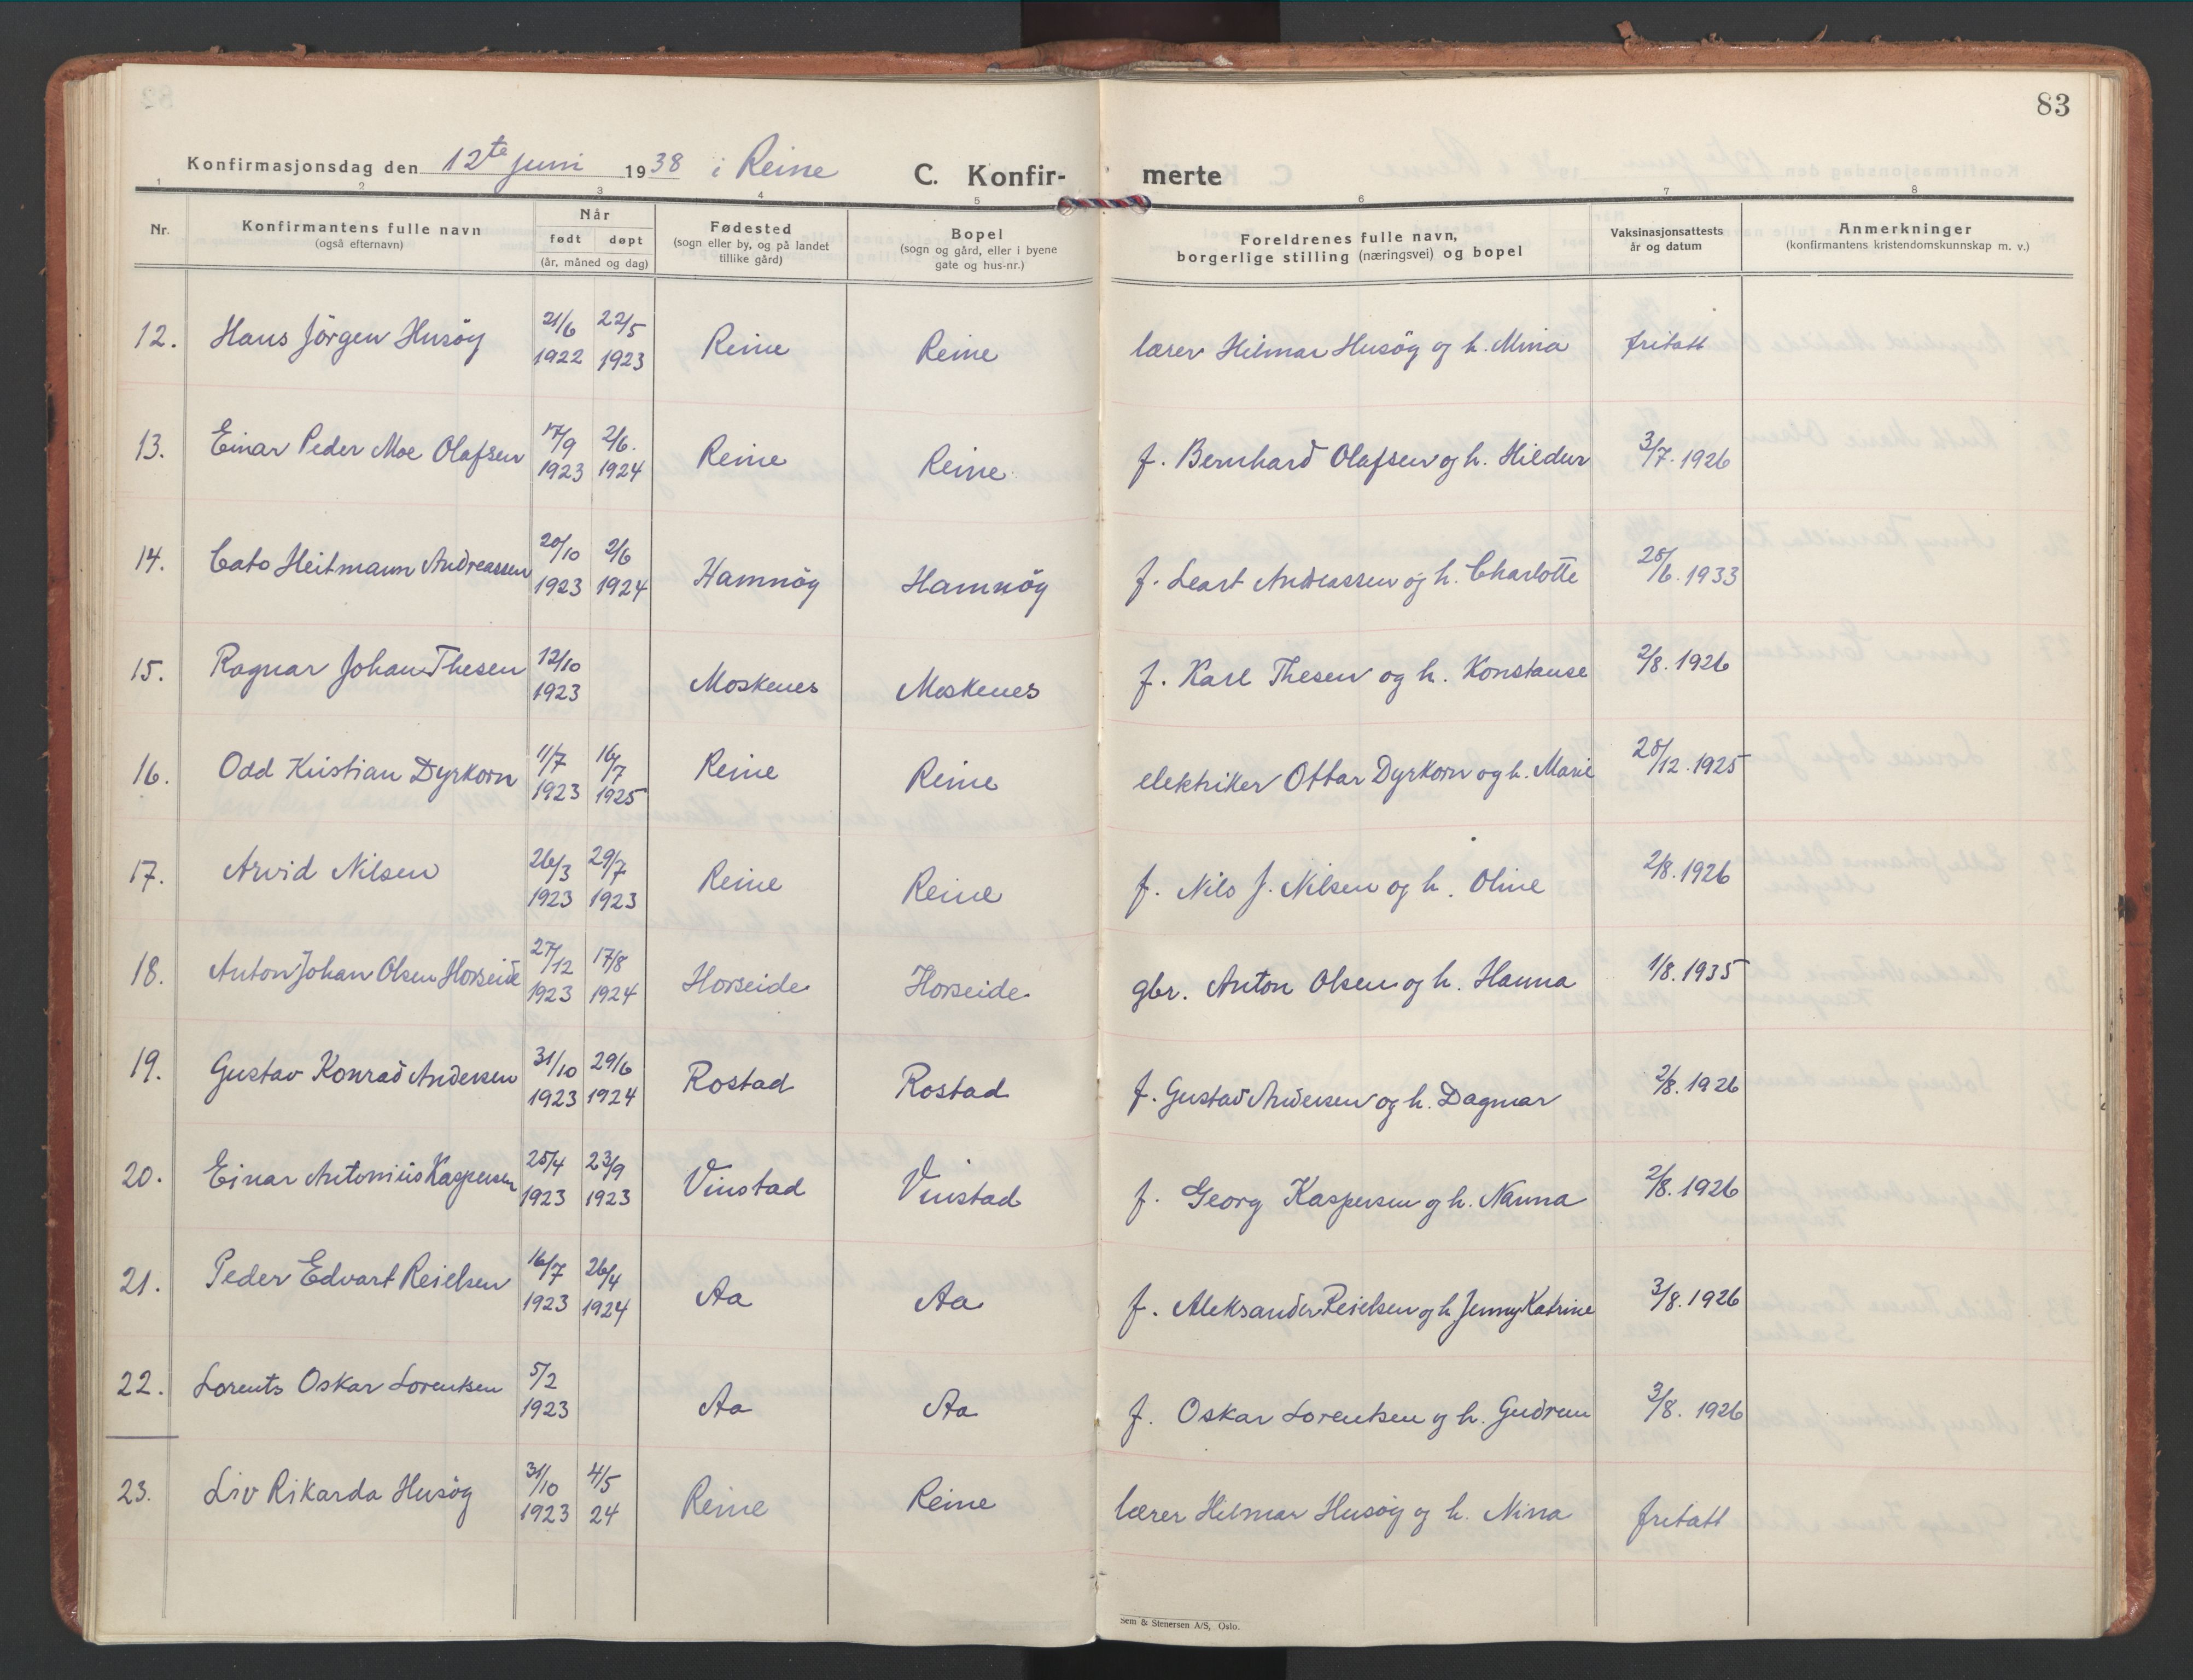 83
Konfirmasjonsdag den 12te juni 1938 i Reine C. Konfir- merte
1 2 3 4 5 6 7 8
Nr. Konfirmantens fulle navn (også efternavn) Når født døpt (år, måned og dag) Fødested (sogn eller by, og på landet tillike gård) Bopel (sogn og gård, eller i byene gate og hus-nr.) Foreldrenes fulle navn, borgerlige stilling (næringsvei) og bopel Vaksinasjonsattests år og datum Anmerkninger (konfirmantens kristendomskunnskap m. v.)
12. Hans Jörgen Husöy 21/6 1922 22/5 1923 Reine Reine lærer Hilmar Husöy og h. Mina fritatt
13. Einar Peder Moe Olafsen 17/9 1923 2/6. 1924 Reine Reine f. Bernhard Olafsen og h. Hildur 3/7. 1926
14. Cato Heitmann Andreassen 20/10 1923 2/6 1924 Hamnöy Hamnöy f. Leart Andreassen og h. Charlotte 28/6. 1933
15. Ragnar Johan Thesen 12/10 1923 Moskenes Moskenes f. Karl Thesen og h. Konstanse 2/8. 1926
16. Odd Kristian Dyrkorn 11/7 1923 16/7 1925 Reine Reine elektriker Ottar Dyrkorn og h. Marie 28/12. 1925
17. Arvid Nilsen 26/3 1923 29/7 1923 Reine Reine f. Nils J. Nilsen og h. Oline 2/8. 1926
18. Anton Johan Olsen Horseide 27/12 1923 17/8 1924 Horseide Horseide gbr. Anton Olsen og h. Hanna 1/8. 1935
19. Gustav Konrad Andersen 31/10 1923 29/6 1924 Rostad Rostad f. Gustav Andersen og h. Dagmar 2/8. 1926
20. Einar Antonius Kaspersen 25/4 1923 23/9 1923 Vinstad Vinstad f. Georg Kaspersen og h. Nanna 2/8. 1926
21. Peder Edvart Reielsen 16/7 1923 26/4 1924 Aa Aa f. Aleksander Reielsen og h. Jenny Katrine 3/8. 1926
22. Lorents Oskar Lorentsen 5/2 1923 Aa Aa f. Oskar Lorentsen og h. Gudrun 3/8. 1926
23. Liv Rikarda Husöy 31/10 1923 4/5 24 Reine Reine lærer Hilmar Husöy og h. Nina fritatt
Sem & Stenersen A/S, Oslo.